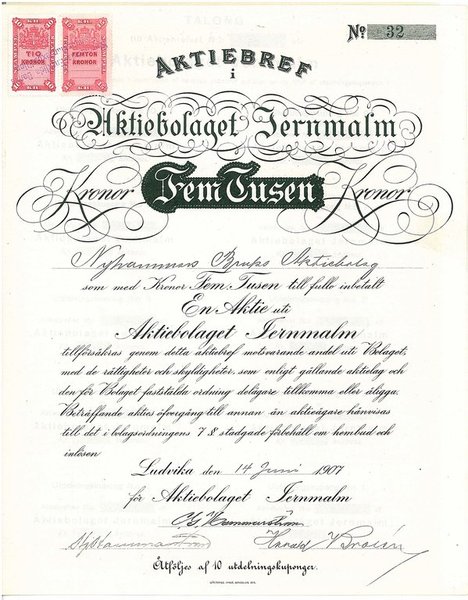 10 10 15 15
TIO KRONOR
FEMTON KRONOR
No 32
AKTIEBREF
i
Aktiebolaget Jernmalm
Kronor Fem Tusen Kronor
Nyhammars Bruks Aktiebolag
som med Kronor Fem Tusen till fullo inbetalt
En Aktie uti
Aktiebolaget Jernmalm
tillförsäkras genom detta aktiebref motsvarande andel uti Bolaget,
med de rättigheter och skyldigheter, som enligt gällande aktielag och
den för Bolaget fastställda ordning delägare tillkomma eller åligga.
Beträffande akties öfvergång till annan än aktieägare hänvisas
till det i bolagsordningens 7 § stadgade förbehåll om hembud och
inlösen
Ludvika den 14 Juni 1907
för Aktiebolaget Jernmalm
Harald
Åtföljes af 10 utdelningskuponger.